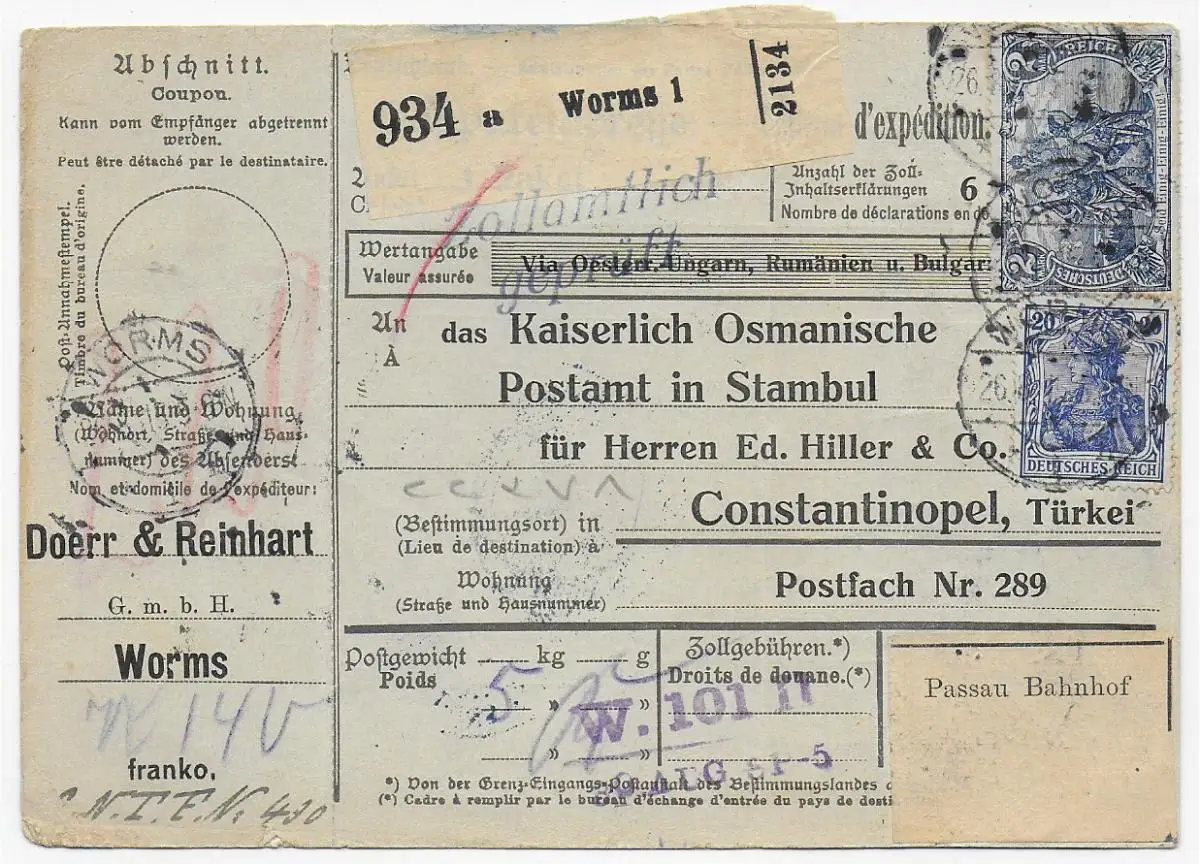 Abschnitt.
Coupon.
Kann vom Empfänger abgetrennt
werden.
Peut être détaché par le destinataire.
Post-Annahmestempel.
Timbre du bureau d'origine.
WORMS
Name und Wohnung
(Wohnort, Straße und Haus-
nummer) des Absenders:
Nom et domicile de l'expéditeur:
Doerr & Reinhart
G. m. b. H.
Worms
franko,
934 a Worms 1 2134
d'expédition.
Anzahl der Zoll-
Inhaltserklärungen 6
Nombre de déclarations en do
Zollamtlich
geprüft
Wertangabe
Valeur assurée
Via Oesterr.-Ungarn, Rumänien u. Bulgar.
An das Kaiserlich Osmanische
À
Postamt in Stambul
für Herren Ed. Hiller & Co.
(Bestimmungsort) in
(Lieu de destination) à
Constantinopel, Türkei
Wohnung
(Straße und Hausnummer)
Postfach Nr. 289
Postgewicht kg g
Poids 5 " "
" "
Zollgebühren.*)
Droits de douane.(*)
W. 101 II
AUG
*) Von der Grenz-Eingangs-Postanstalt des Bestimmungslandes
(*) Cadre à remplir par le bureau d'échange d'entrée du pays de desti
Passau Bahnhof
2 REICH 2
Seid Einig-Einig-Einig!
DEUTSCHES
20
DEUTSCHES REICH